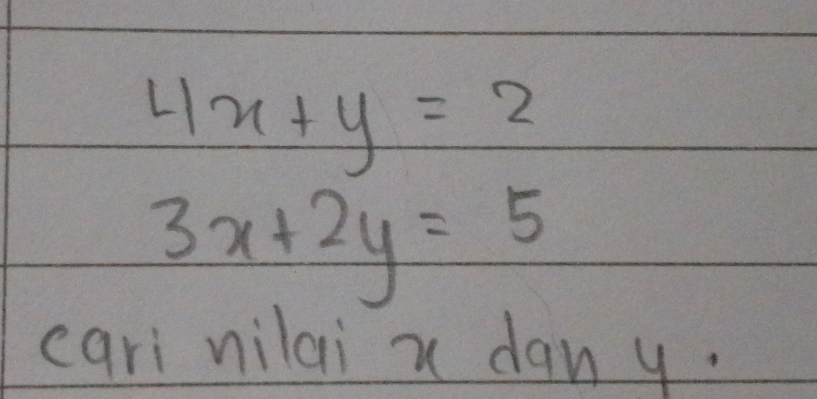 4x+y = 2
3x+2y = 5
cari nilai x dan y.